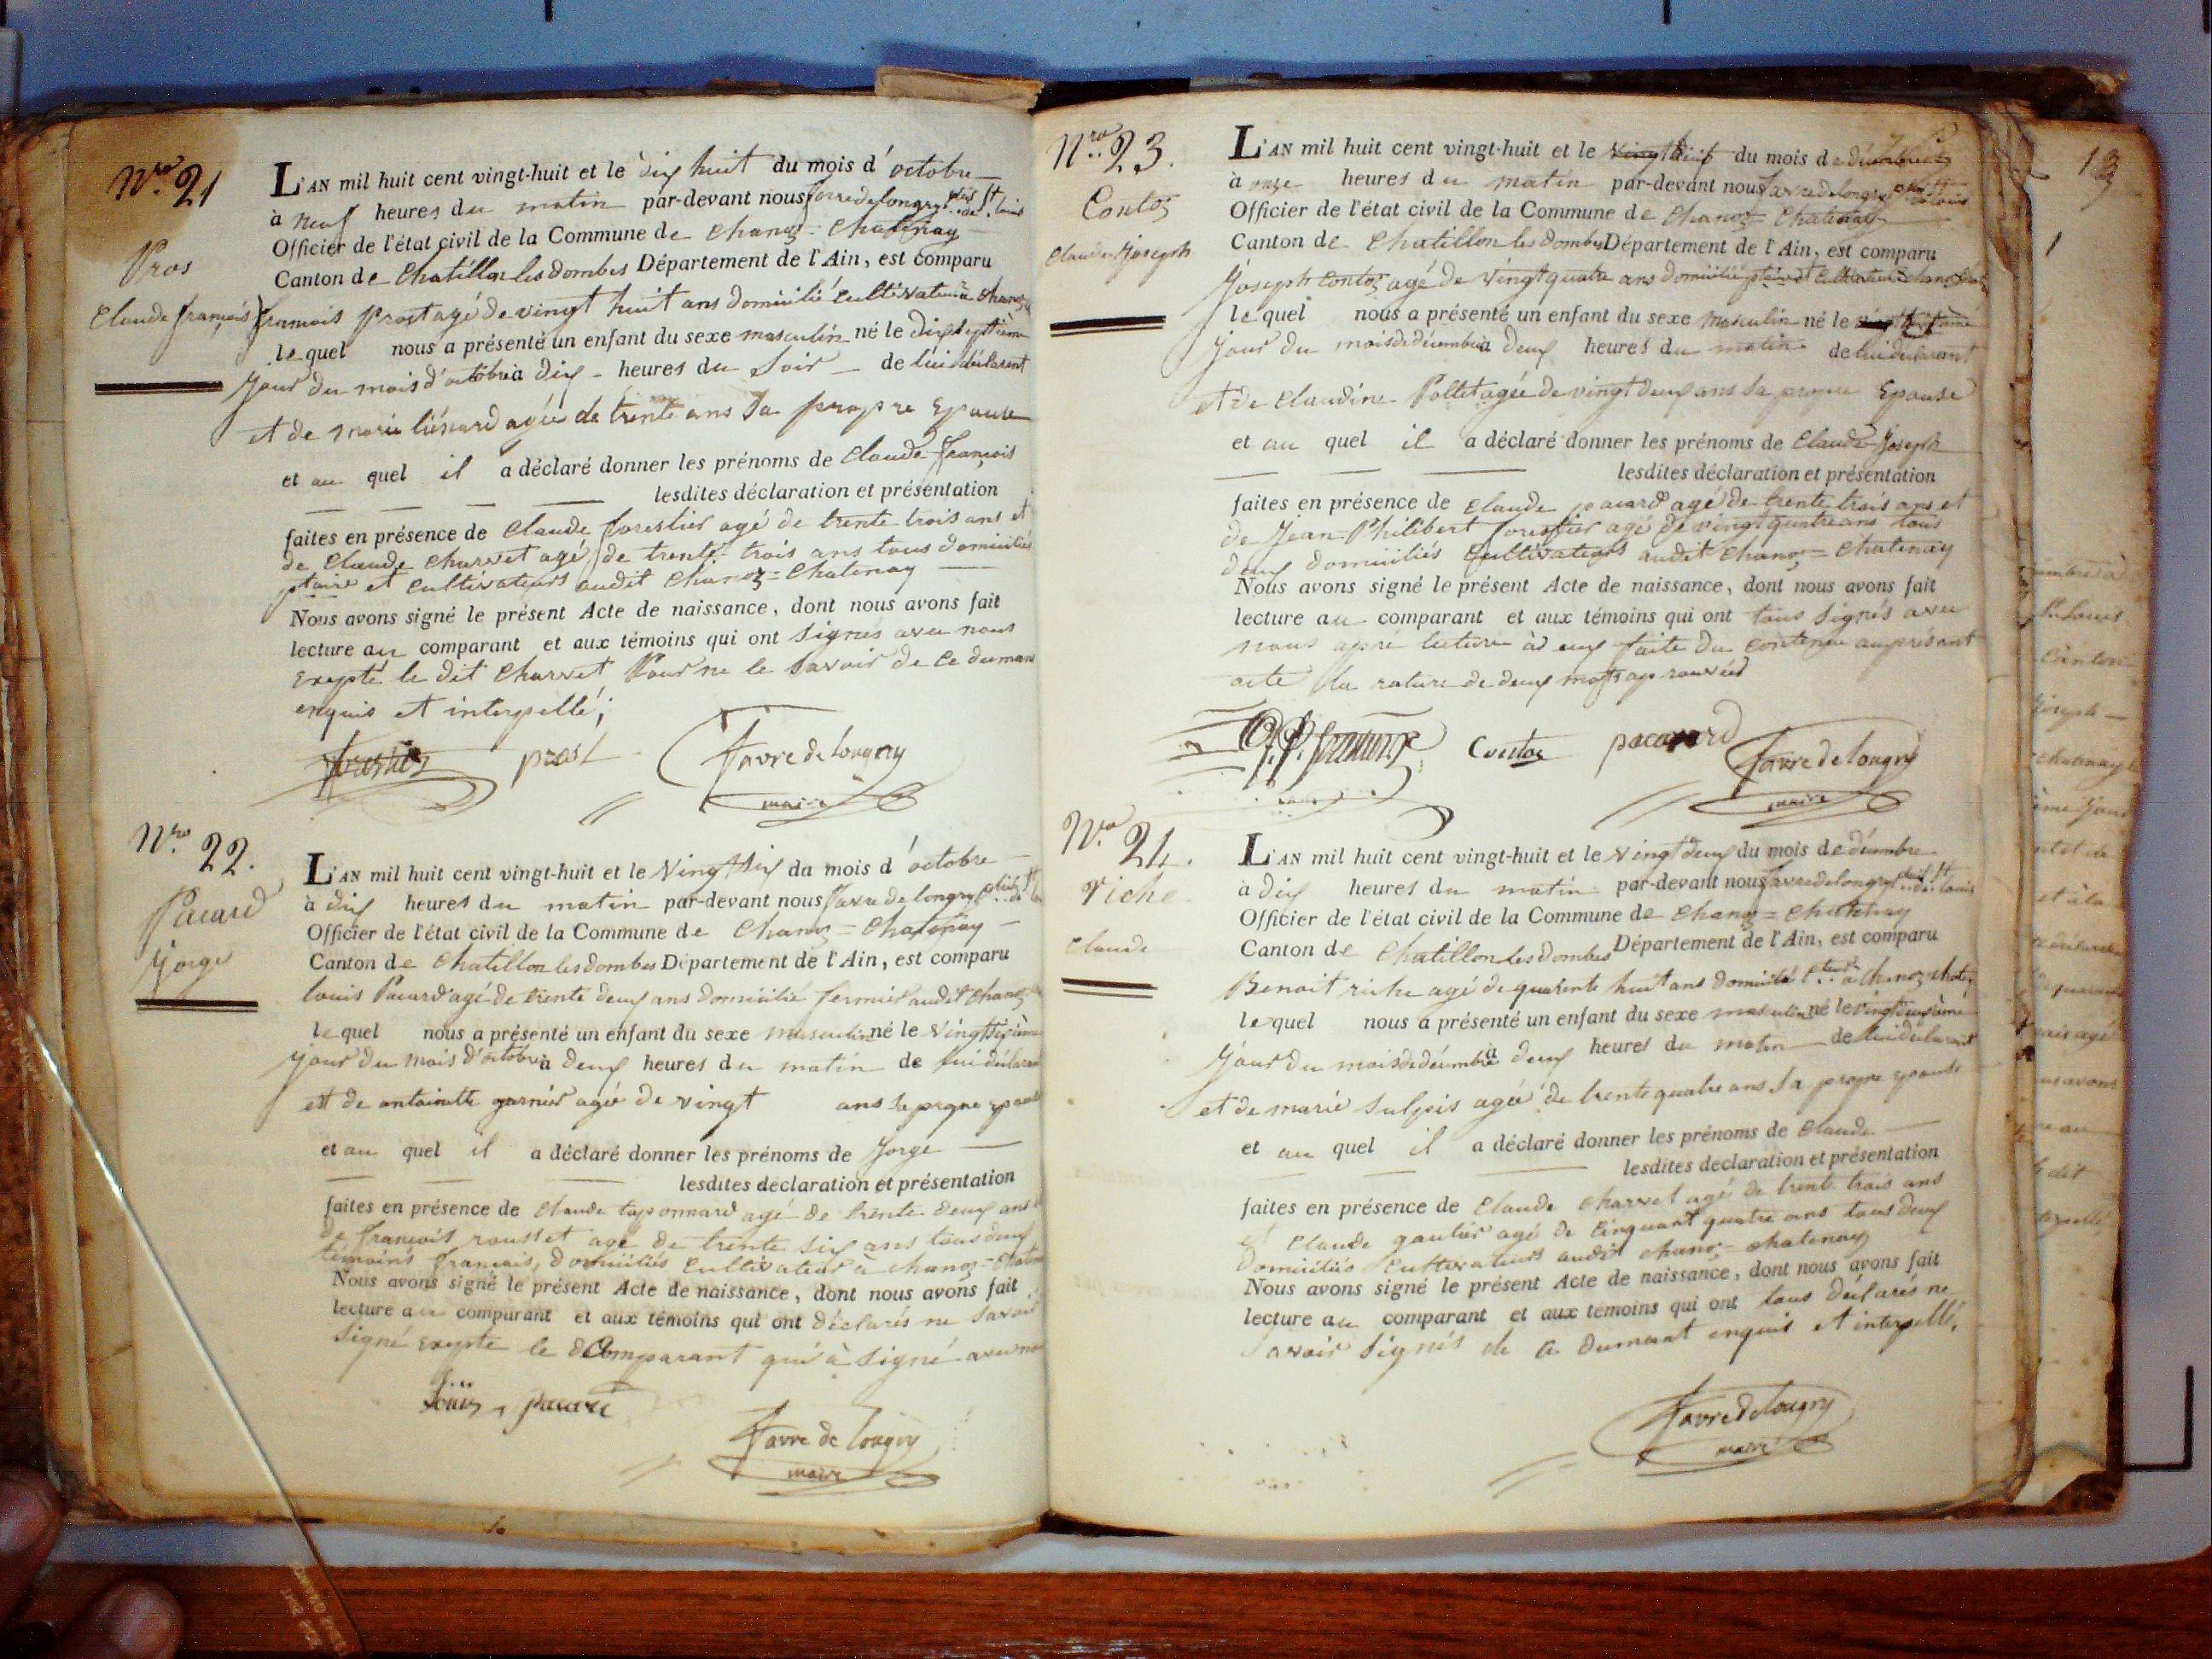 Nro 21
Pros
Claude françois
L'AN mil huit cent vingt-huit et le dix huit du mois d'octobre
à neuf heures du matin par-devant nous favre de longry
Officier de l'état civil de la Commune de Chanoz = Chatenay
Canton de Chatillon les dombes Département de l'Ain, est comparu
françois prost agé de vingt huit ans domicilié cultivateur à chanoz
lequel nous a présenté un enfant du sexe masculin né le dix septième
jour du mois d'octobre à dix heures du soir de lui déclarent
et de marie liénard agée de trente ans sa propre Epouse
et au quel il a déclaré donner les prénoms de Claude françois
lesdites déclaration et présentation
faites en présence de Claude forestier agé de trente trois ans et
de Claude Charvet agé de trente trois ans tous domiciliés
ptaire et cultivateurs audit Chanoz = Chatenay
Nous avons signé le présent Acte de naissance, dont nous avons fait
lecture au comparant et aux témoins qui ont signés avec nous
Exepté le dit Charvet Pour ne le savoir de ce dumant
enquis et interpellé;
forestier prost favre de longry
maire
Nro 22.
Pacard
Jorge
L'AN mil huit cent vingt-huit et le Vingt six du mois d'octobre
à dix heures du matin par-devant nous favre de longry
Officier de l'état civil de la Commune de Chanoz = Chatenay
Canton de Chatillon les dombes Département de l'Ain, est comparu
louis Pacard agé de trente deux ans domicilié fermier audit Chanoz
lequel nous a présenté un enfant du sexe masculin né le Vingt sixième
jour du mois d'octobre à deux heures du matin de lui déclarant
et de antoinette garnier agée de vingt ans sa propre epouse
et au quel il a déclaré donner les prénoms de Jorge
lesdites déclaration et présentation
faites en présence de Claude taponnard agé de trente deux ans
de françois rousset agé de trente six ans tous deux
témoins francais, domiciliés cultivateur à chanoz = chatenay
Nous avons signé le présent Acte de naissance, dont nous avons fait
lecture au comparant et aux témoins qui ont déclarés ne savoir
signé Exepté le Comparant qui à signé avec nous
Loüis pacard
favre de longry
maire
Nro 23.
Contoz
Claude Joseph
L'AN mil huit cent vingt-huit et le du mois de décembre
à onze heures du matin par-devant nous favre de longry
Officier de l'état civil de la Commune de Chanoz = Chatenay
Canton de Chatillon les dombes Département de l'Ain, est comparu
Joseph Contoz agé de vingt quatre ans domicilié ptaire et Cultivateur
lequel nous a présenté un enfant du sexe masculin né le
jour du mois de décembre à deux heures du matin de lui déclarant
et de Claudine Pollet agée de vingt deux ans sa propre Epouse
et au quel il a déclaré donner les prénoms de Claude Joseph
lesdites déclaration et présentation
faites en présence de Claude pacard agé de trente trois ans et
de Jean Philibert forestier agé de vingt quatre ans tous
deux domiciliés Cultivateurs audit Chanoz = Chatenay
Nous avons signé le présent Acte de naissance, dont nous avons fait
lecture au comparant et aux témoins qui ont tous signés avec
nous apré lecture à eux faite du contenu au présent
acte la rature de deux mots aprouvées
Contoz pacard favre de longry
maire
Nro 24.
riche
Claude
L'AN mil huit cent vingt-huit et le vingt deux du mois de décembre
à dix heures du matin par-devant nous favre de longry
Officier de l'état civil de la Commune de Chanoz = Chatenay
Canton de Chatillon les dombes Département de l'Ain, est comparu
Benoit riche agé de quarente huit ans domicilié à chanoz chatenay
lequel nous a présenté un enfant du sexe masculin né le vingt deuxième
jour du mois de décembre à deux heures du matin de lui déclarant
et de marie Sulpis agée de trente quatre ans sa propre epouse
et au quel il a déclaré donner les prénoms de Claude
lesdites déclaration et présentation
faites en présence de Claude charvet agé de trente trois ans
et Claude gautier agé de Cinquant quatre ans tous deux
domiciliés cultivateurs audit chanoz = chatenay
Nous avons signé le présent Acte de naissance, dont nous avons fait
lecture au comparant et aux témoins qui ont tous déclarés ne
savoir signés de ce dumant enquis et interpellé.
favre de longry
maire
13